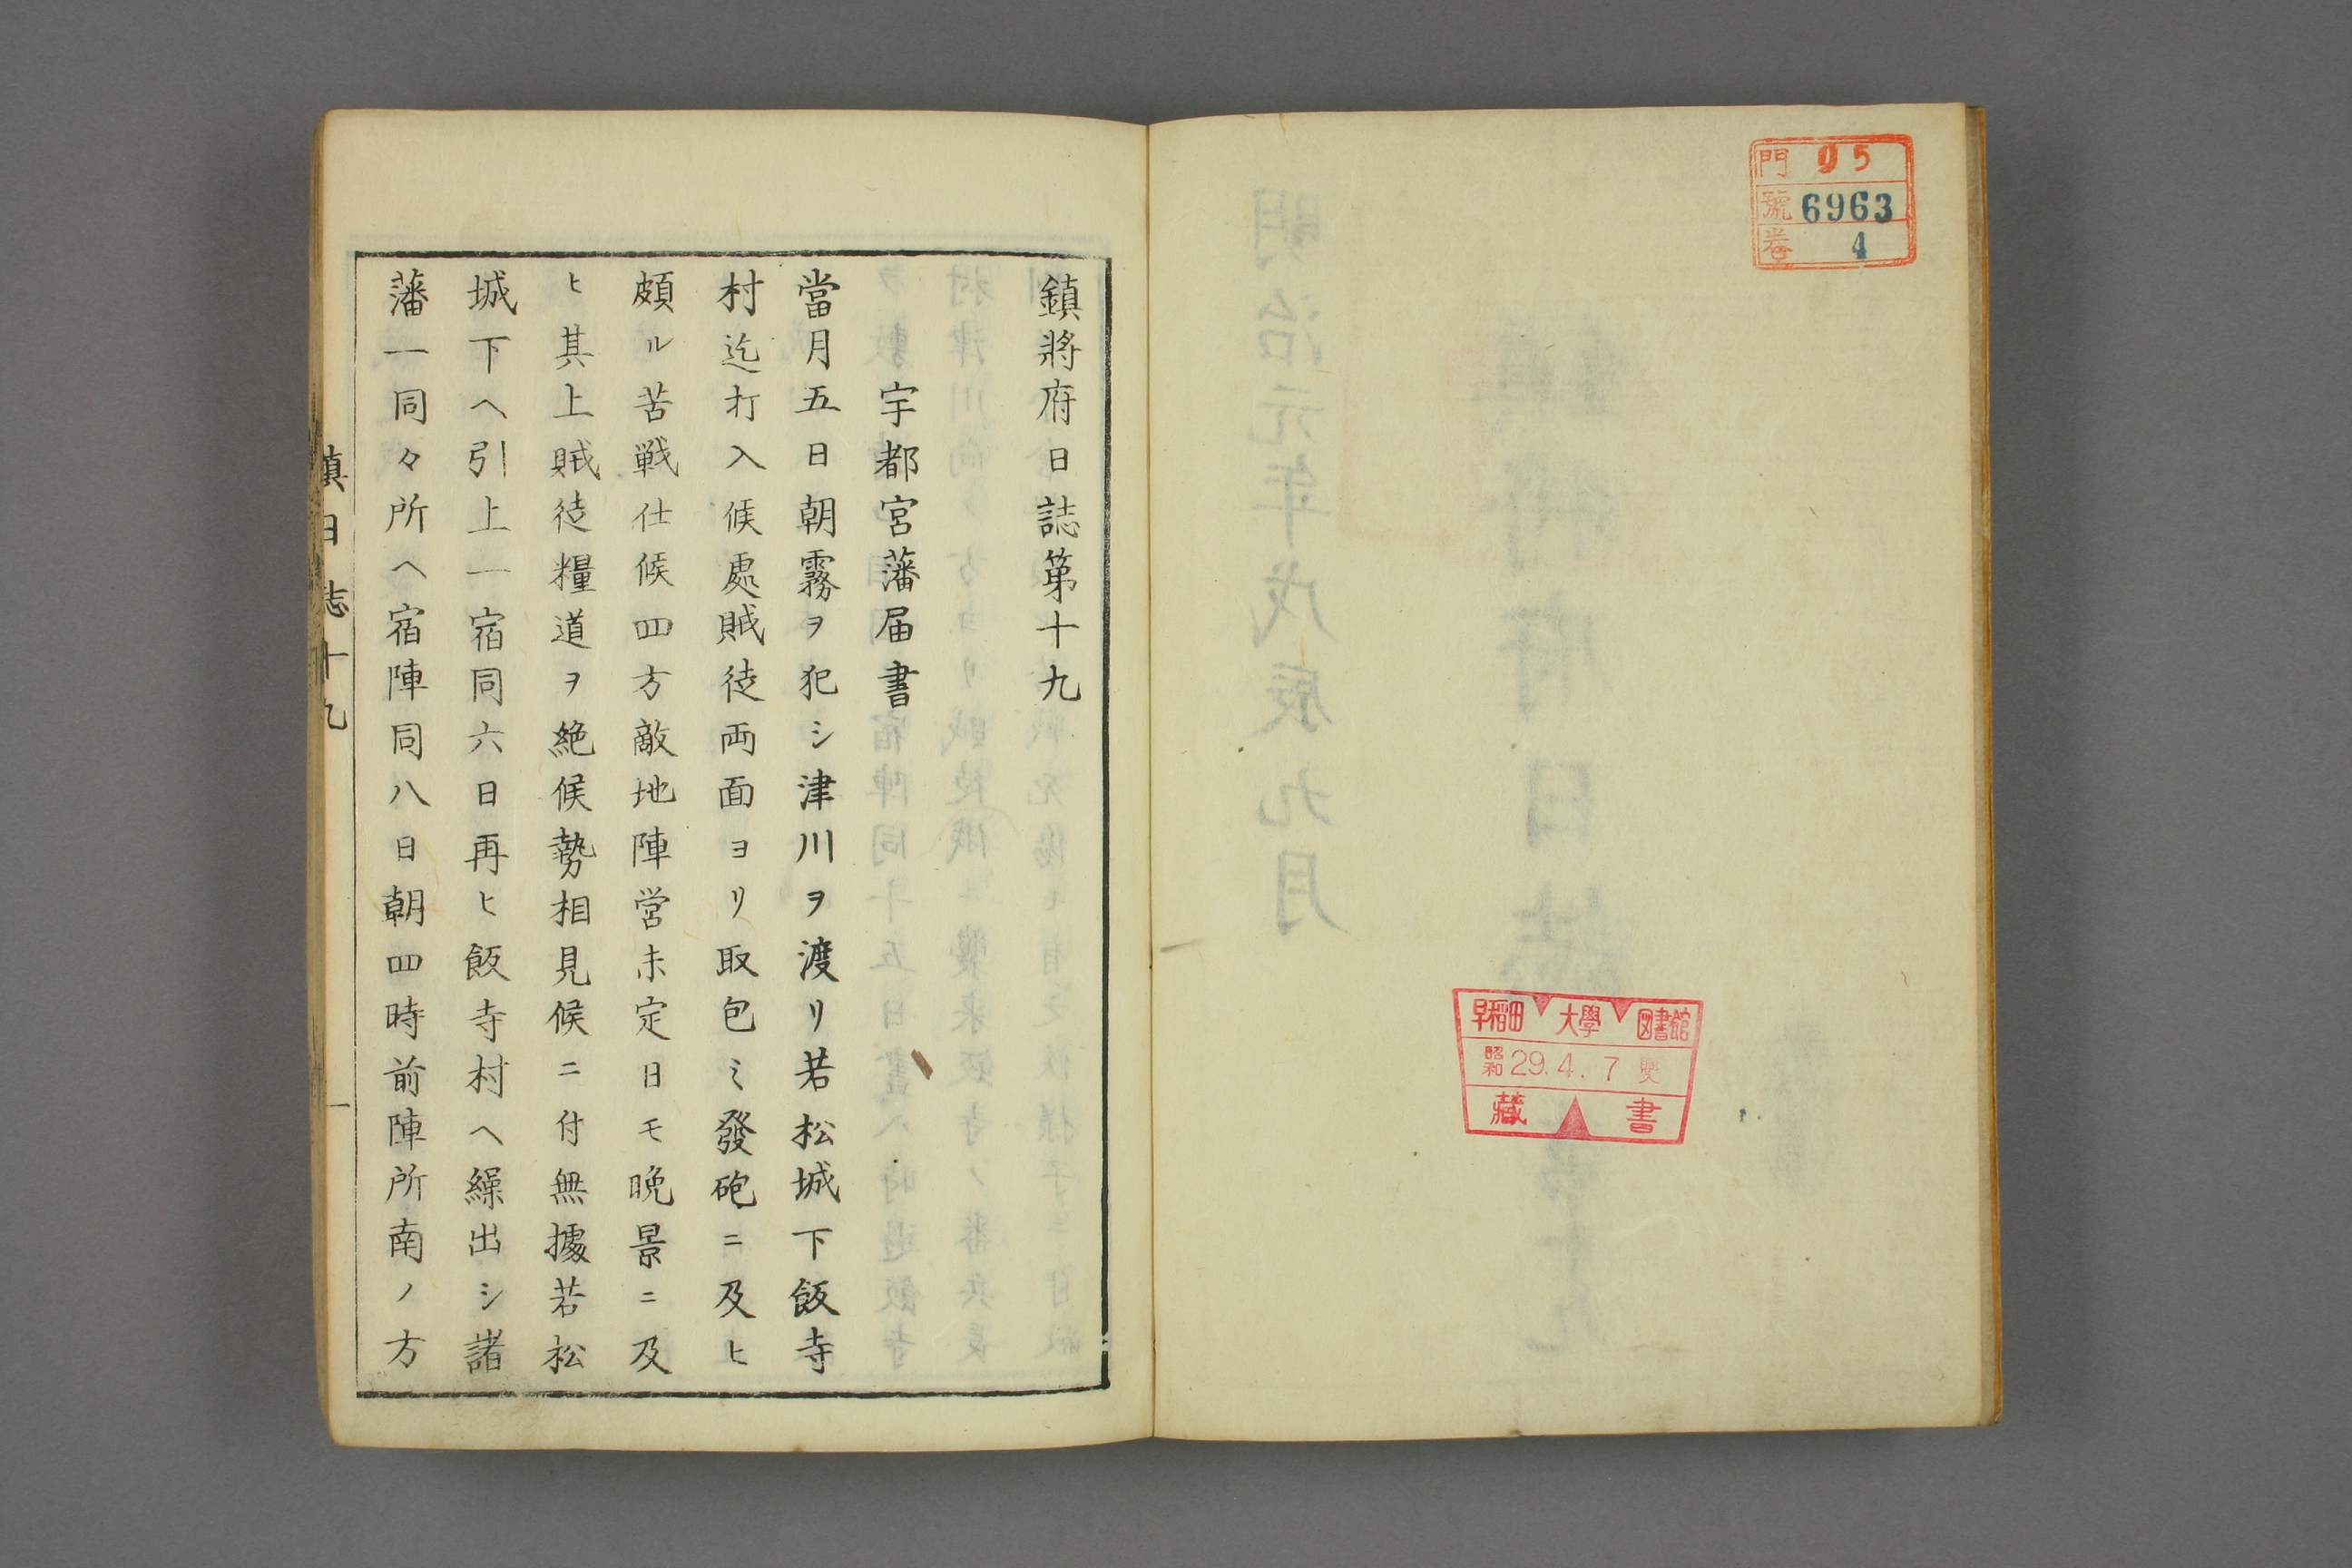 門 05
號 6963
卷 4
早稲田大學図書館
昭和 29.4.7
藏書
鎮將府日誌第十九
宇都宮藩届書
當月五日朝霧ヲ犯シ津川ヲ渡リ若松城下飯寺
村迄打入候處賊徒両面ヨリ取包ミ發砲ニ及ヒ
頗ル苦戦仕候四方敵地陣営未定日モ晩景ニ及
ヒ其上賊徒糧道ヲ絶候勢相見候ニ付無據若松
城下ヘ引上一宿同六日再ヒ飯寺村ヘ繰出シ諸
藩一同々所ヘ宿陣同八日朝四時前陣所南ノ方
鎮日誌十九
一